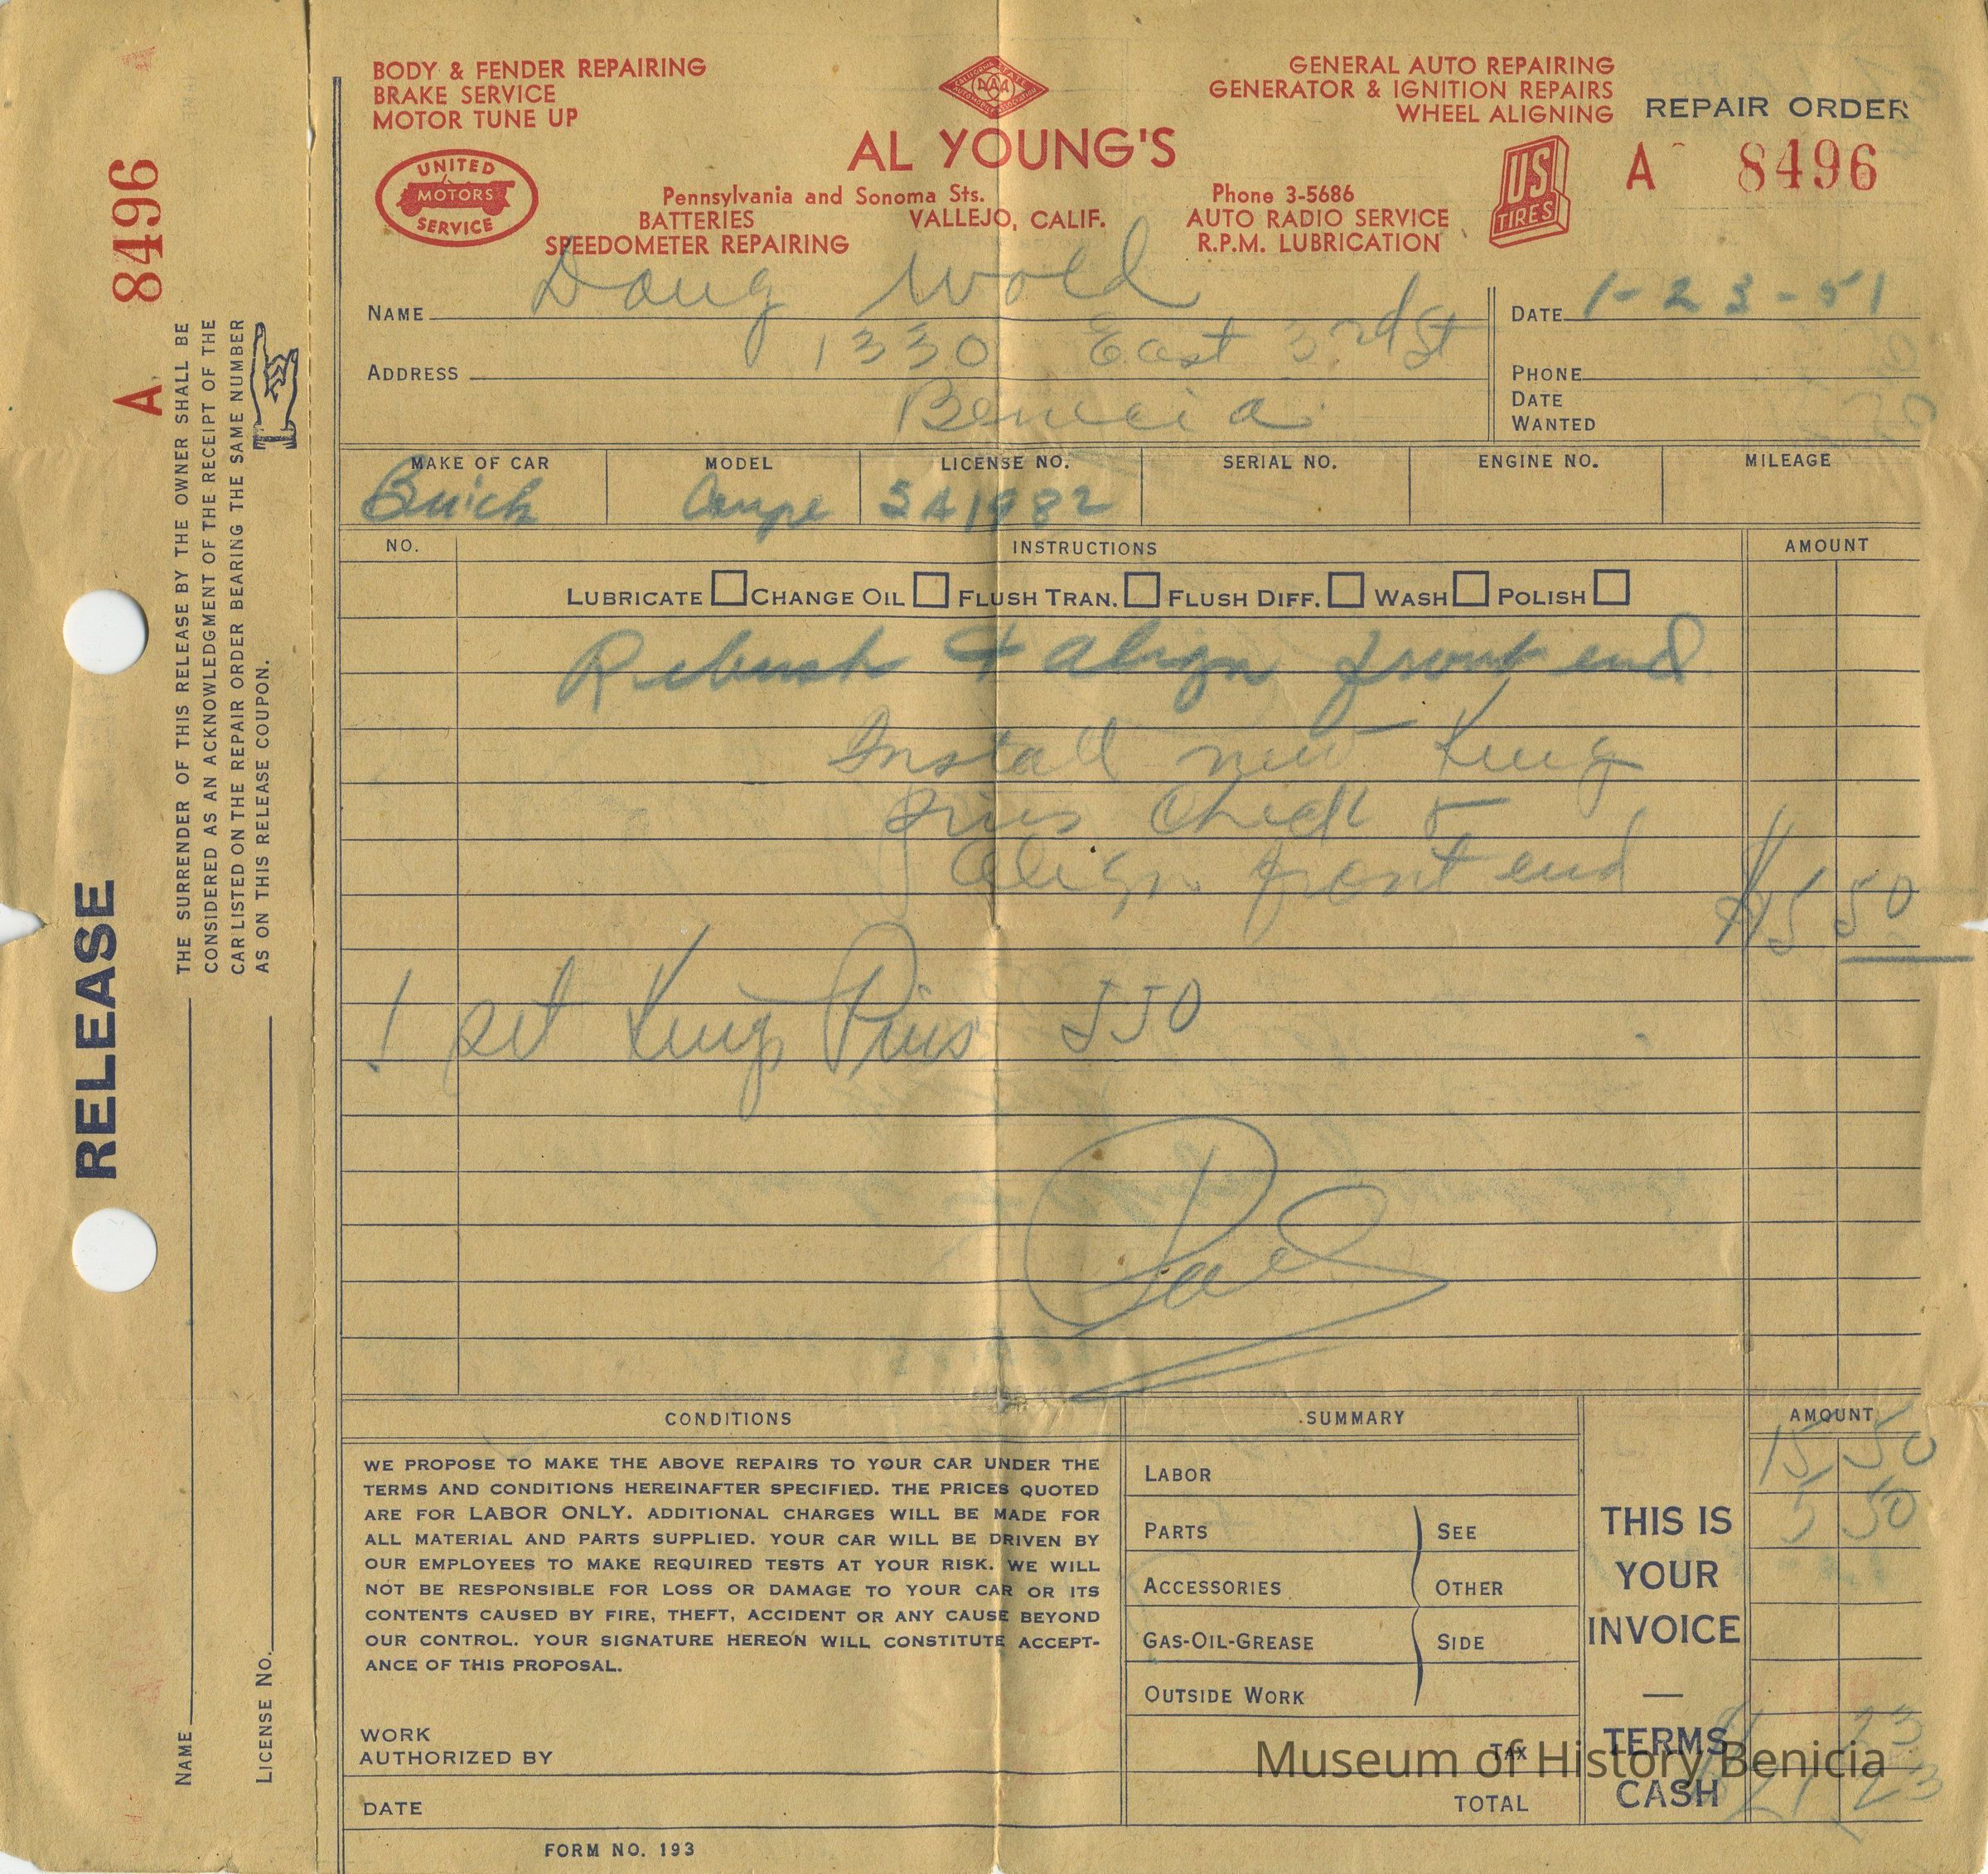 BODY & FENDER REPAIRING
BRAKE SERVICE
MOTOR TUNE UP
UNITED MOTORS SERVICE
CALIFORNIA STATE AAA AUTOMOBILE ASSOCIATION
AL YOUNG'S
Pennsylvania and Sonoma Sts. Phone 3-5686
BATTERIES VALLEJO, CALIF. AUTO RADIO SERVICE
SPEEDOMETER REPAIRING R.P.M. LUBRICATION
GENERAL AUTO REPAIRING
GENERATOR & IGNITION REPAIRS
WHEEL ALIGNING
US TIRES
REPAIR ORDER
A 8496
NAME Doug Wold
ADDRESS 1330 East 3rd St
Benicia
DATE 1-23-51
PHONE
DATE
WANTED
MAKE OF CAR MODEL LICENSE NO. SERIAL NO. ENGINE NO. MILEAGE
Buick Coupe 5A1982
NO. INSTRUCTIONS AMOUNT
LUBRICATE CHANGE OIL FLUSH TRAN. FLUSH DIFF. WASH POLISH
Rebush & align front end
Install new King
Pins Check &
align front end
15 50
1 set King Pins 550
Paid
CONDITIONS
WE PROPOSE TO MAKE THE ABOVE REPAIRS TO YOUR CAR UNDER THE
TERMS AND CONDITIONS HEREINAFTER SPECIFIED. THE PRICES QUOTED
ARE FOR LABOR ONLY. ADDITIONAL CHARGES WILL BE MADE FOR
ALL MATERIAL AND PARTS SUPPLIED. YOUR CAR WILL BE DRIVEN BY
OUR EMPLOYEES TO MAKE REQUIRED TESTS AT YOUR RISK. WE WILL
NOT BE RESPONSIBLE FOR LOSS OR DAMAGE TO YOUR CAR OR ITS
CONTENTS CAUSED BY FIRE, THEFT, ACCIDENT OR ANY CAUSE BEYOND
OUR CONTROL. YOUR SIGNATURE HEREON WILL CONSTITUTE ACCEPT-
ANCE OF THIS PROPOSAL.
WORK
AUTHORIZED BY
DATE
SUMMARY
LABOR
PARTS SEE
ACCESSORIES OTHER
GAS-OIL-GREASE SIDE
OUTSIDE WORK
TAX
TOTAL
THIS IS
YOUR
INVOICE
—
TERMS
CASH
AMOUNT
15 50
5 50
23
21 23
FORM NO. 193
Museum of History Benicia
A 8496
RELEASE
THE SURRENDER OF THIS RELEASE BY THE OWNER SHALL BE
CONSIDERED AS AN ACKNOWLEDGMENT OF THE RECEIPT OF THE
CAR LISTED ON THE REPAIR ORDER BEARING THE SAME NUMBER
AS ON THIS RELEASE COUPON.
NAME
LICENSE NO.